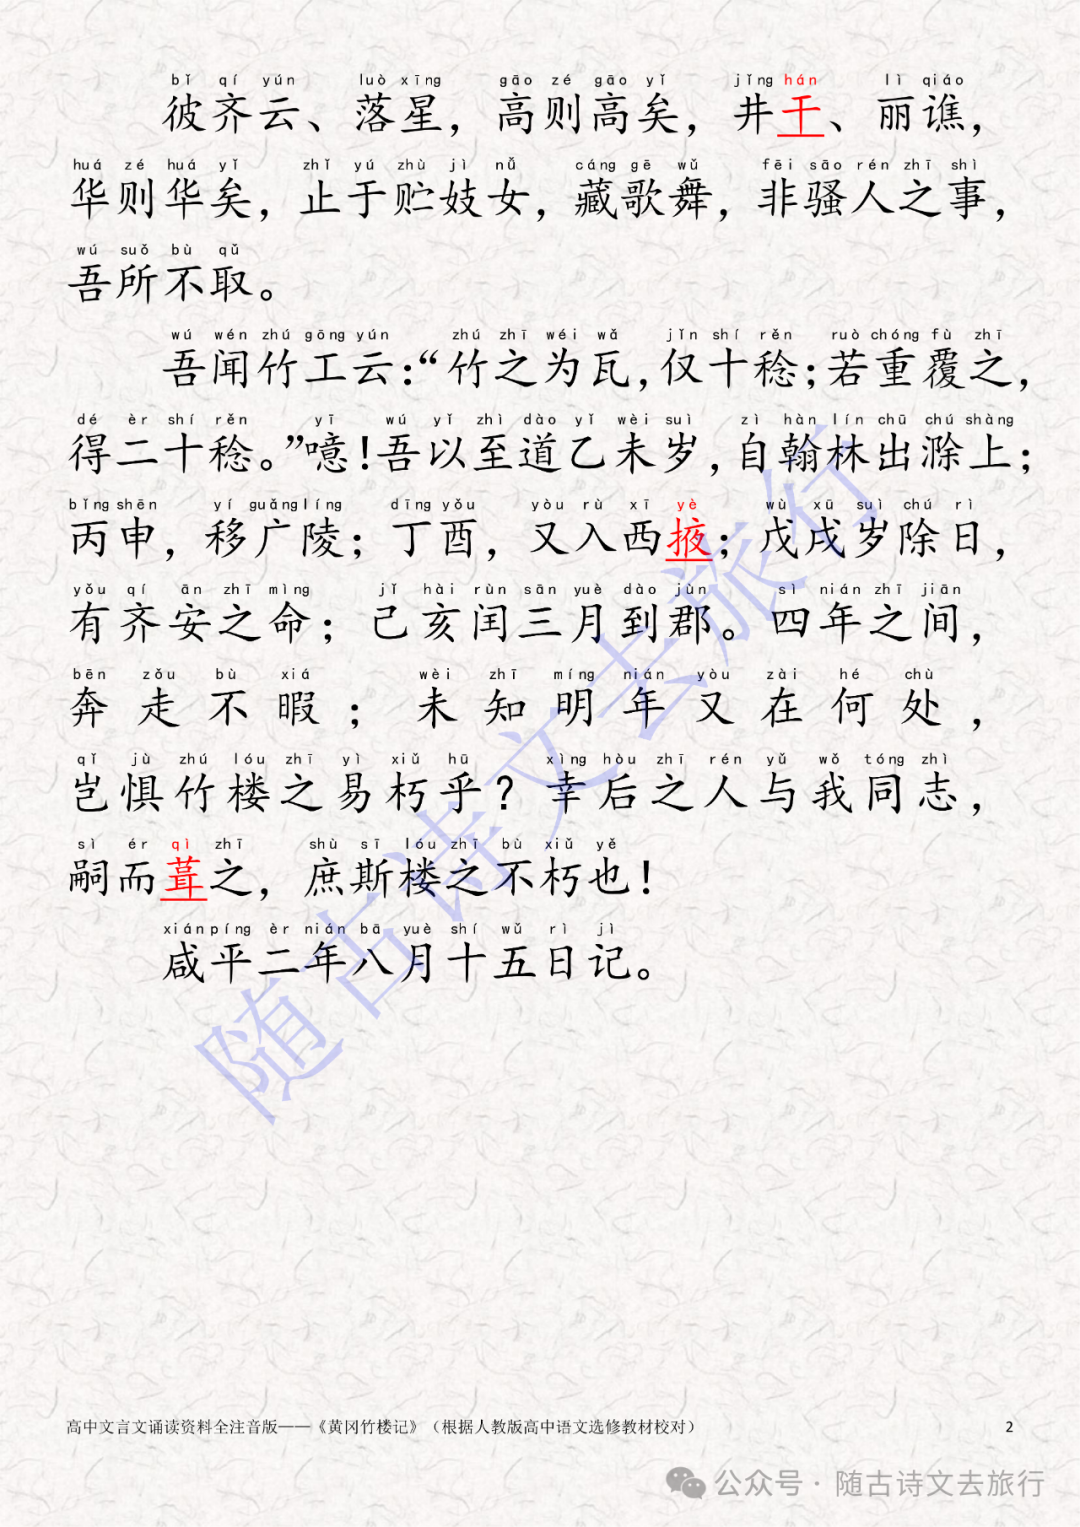 bǐ qí yún luò xīng gāo zé gāo yǐ jǐng hán lì qiáo
彼齐云、落星，高则高矣，井干、丽谯，
huá zé huá yǐ zhǐ yú zhù jì nǚ cáng gē wǔ fēi sāo rén zhī shì
华则华矣，止于贮妓女，藏歌舞，非骚人之事，
wú suǒ bù qǔ
吾所不取。
wú wén zhú gōng yún zhú zhī wéi wǎ jǐn shí rěn ruò chóng fù zhī
吾闻竹工云：“竹之为瓦，仅十稔；若重覆之，
dé èr shí rěn yī wú yǐ zhì dào yǐ wèi suì zì hàn lín chū chú shàng
得二十稔。”噫！吾以至道乙未岁，自翰林出滁上；
bǐng shēn yí guǎng líng dīng yǒu yòu rù xī yè wù xū suì chú rì
丙申，移广陵；丁酉，又入西掖；戊戌岁除日，
yǒu qí ān zhī mìng jǐ hài rùn sān yuè dào jùn sì nián zhī jiān
有齐安之命；己亥闰三月到郡。四年之间，
bēn zǒu bù xiá wèi zhī míng nián yòu zài hé chù
奔走不暇；未知明年又在何处，
qǐ jù zhú lóu zhī yì xiǔ hū xìng hòu zhī rén yǔ wǒ tóng zhì
岂惧竹楼之易朽乎？幸后之人与我同志，
sì ér qì zhī shù sī lóu zhī bù xiǔ yě
嗣而葺之，庶斯楼之不朽也！
xián píng èr nián bā yuè shí wǔ rì jì
咸平二年八月十五日记。
随古诗文去旅行
高中文言文诵读资料全注音版——《黄冈竹楼记》（根据人教版高中语文选修教材校对） 2
公众号·随古诗文去旅行